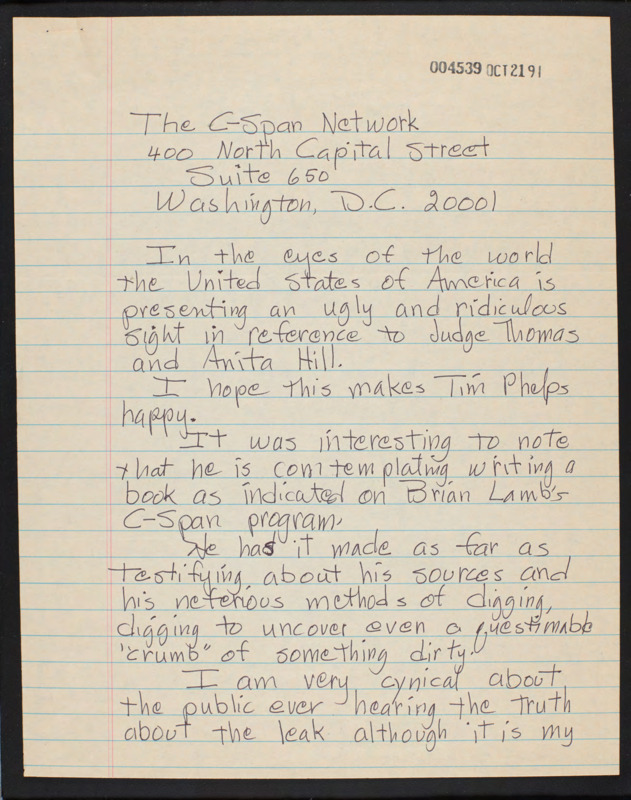 004539 OCT 21 91
The C-Span Network
400 North Capital Street
Suite 650
Washington, D.C. 20001
In the eyes of the world
the United States of America is
presenting an ugly and ridiculous
sight in reference to Judge Thomas
and Anita Hill.
I hope this makes Tim Phelps
happy.
It was interesting to note
that he is comtemplating writing a
book as indicated on Brian Lamb's
C-Span program.
He has it made as far as
testifying about his sources and
his neferious methods of digging,
digging to uncover even a questimable
"crumb" of something dirty.
I am very cynical about
the public ever hearing the truth
about the leak although it is my